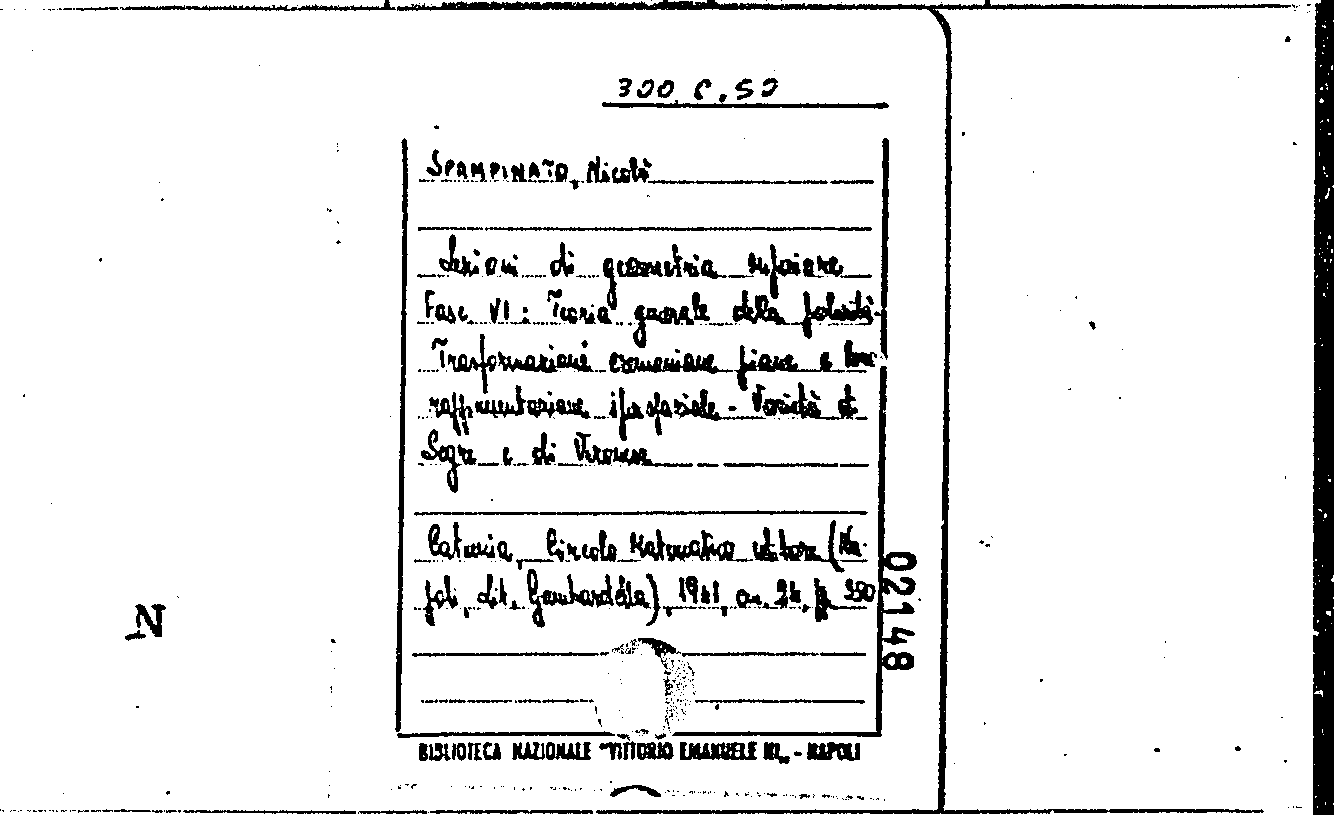 300 C.50
SPAMPINATO, Nicolò
Lezioni di geometria superiore
Fasc. VI: Teoria generale della polarità-
Trasformazioni cremoniane piane e loro
rappresentazione iperspaziale - Varietà di
Segre e di Veronese
Catania, Circolo Matematico editore (Na-
poli, Lit. Gambardella), 1941, in. 24, p. 350
02148
N
BIBLIOTECA NAZIONALE "VITTORIO EMANUELE III„ - NAPOLI